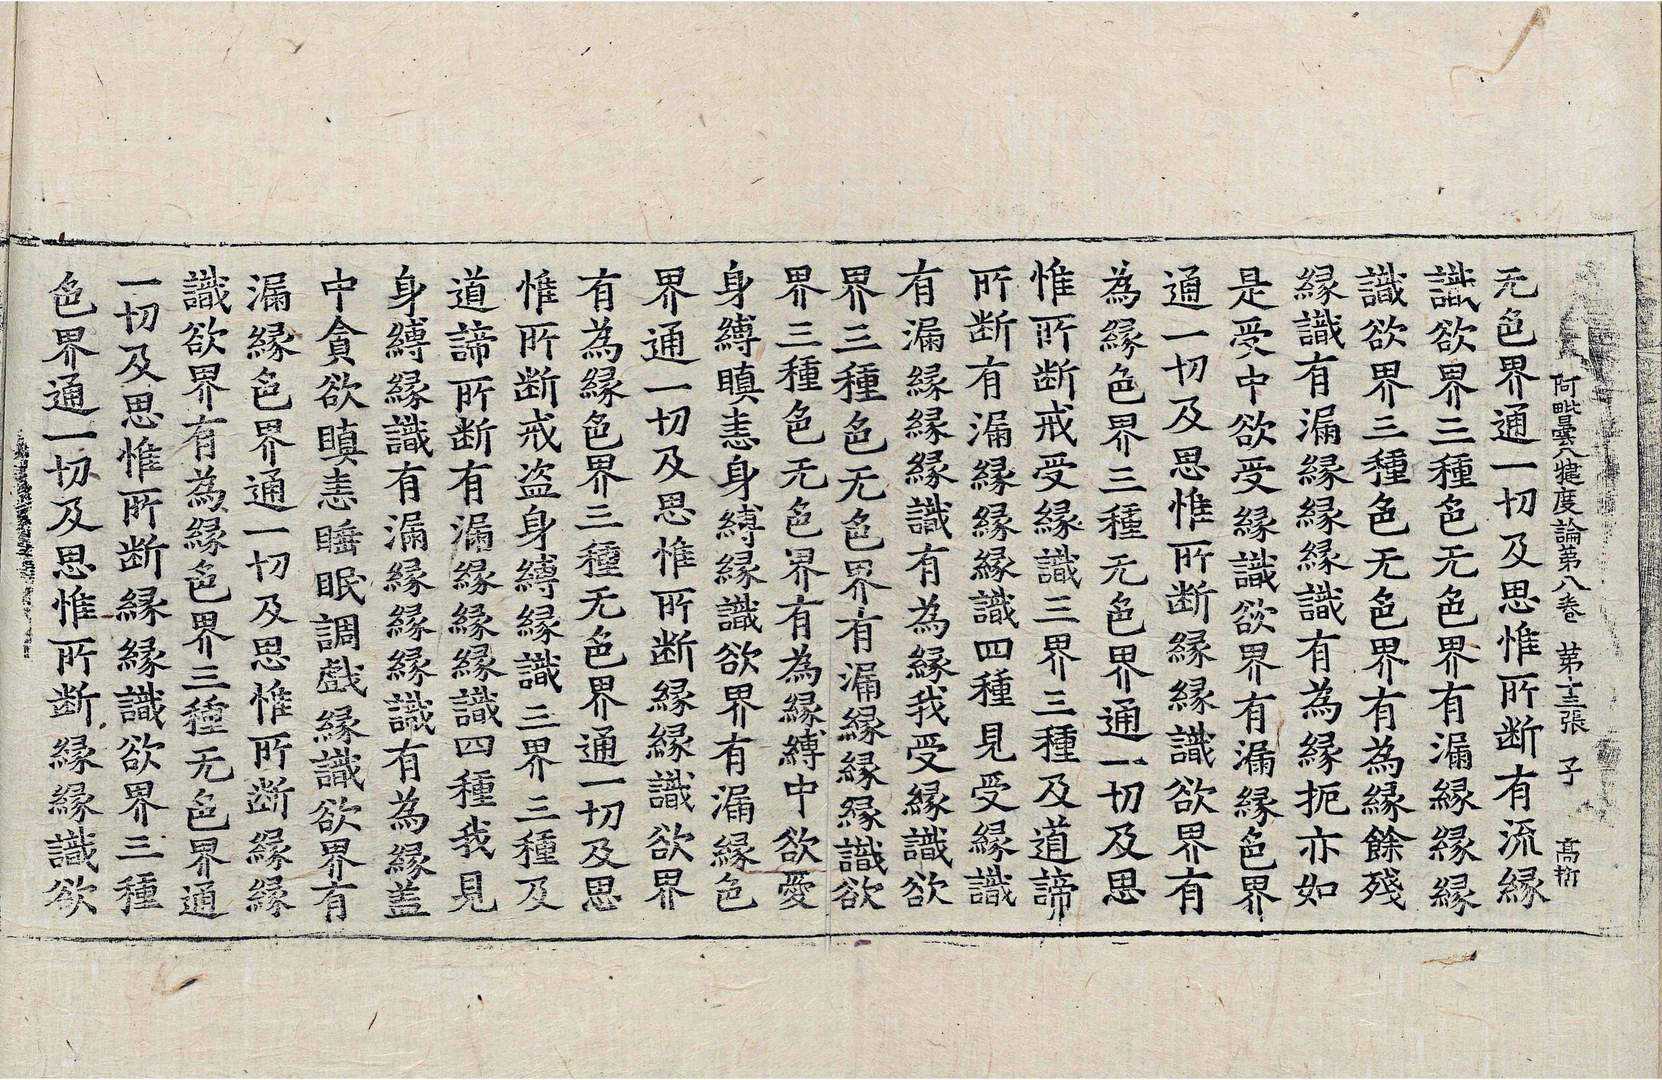 阿毗曇八揵度論苐八卷 苐十三張 子 髙
无色界通一切及思惟所断有流緣
識欲界三種色无色界有漏緣緣緣
識欲界三種色无色界有為緣餘殘
緣識有漏緣緣緣識有為緣扼亦如
是受中欲受緣識欲界有漏緣色界
通一切及思惟所断緣緣識欲界有
為緣色界三種无色界通一切及思
惟所断戒受緣識三界三種及道諦
所断有漏緣緣緣識四種見受緣識
有漏緣緣緣識有為緣我受緣識欲
界三種色无色界有漏緣緣緣識欲
界三種色无色界有為緣縛中欲愛
身縛瞋恚身縛緣識欲界有漏緣色
界通一切及思惟所断緣緣識欲界
有為緣色界三種无色界通一切及思
惟所断戒盗身縛緣識三界三種及
道諦所断有漏緣緣緣識四種我見
身縛緣識有漏緣緣緣識有為緣盖
中貪欲瞋恚睡眠調戲緣識欲界有
漏緣色界通一切及思惟所断緣緣
識欲界有為緣色界三種无色界通
一切及思惟所断緣緣識欲界三種
色界通一切及思惟所断緣緣識欲